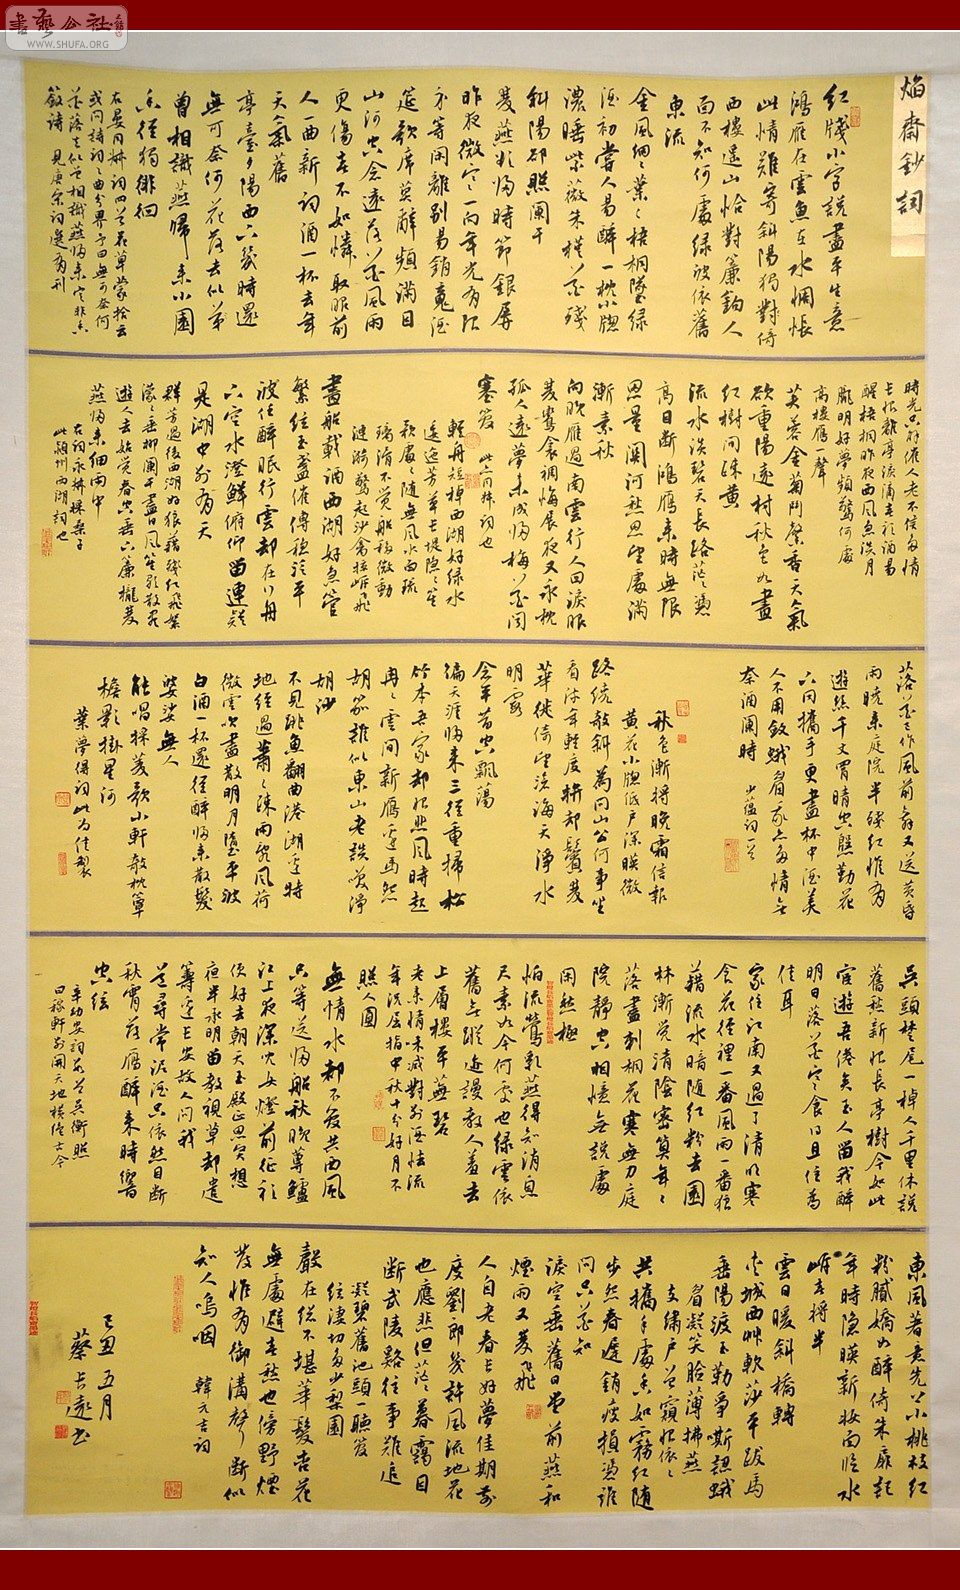 書藝公社
WWW.SHUFA.ORG
焰齋鈔詞
紅牋小字說盡平生意
鴻雁在雲魚在水惆悵
此情難寄斜陽獨對倚
西樓遙山恰對簾鉤人
面不知何處綠波依舊
東流
金風細細葉葉梧桐墜綠
酒初嘗人易醉一枕小牕
濃睡紫薇朱槿花殘
斜陽卻照闌干
雙燕欲歸時節銀屏
昨夜微寒一向年光有限
身等閒離別易銷魂酒
筵歌席莫辭頻滿目
山河空念遠落花風雨
更傷春不如憐取眼前
人一曲新詞酒一杯去年
天氣舊
亭臺夕陽西下幾時還
無可奈何花落去似曾
曾相識燕歸來小園
香徑獨徘徊
時光只解催人老不信多情
長恨離亭淚滴春衫酒易
醒梧桐昨夜西風急淡月
朧明好夢頻驚何處
高樓雁一聲
芙蓉金菊鬥馨香天氣
欲重陽遠村秋色如畫
紅樹間疎黃
流水淡碧天長路茫茫憑
高目斷鴻雁來時無限
思量關河愁思望處滿
漸素秋
向晚雁過南雲行人回淚眼
雙鸞衾裯悔展夜又永枕
孤人遠夢未成歸梅花聞
塞管
輕舟短棹西湖好綠水
逶迤芳草長堤隱隱笙
歌處處隨無風水面琉
璃滑不覺船移微動
漣漪驚起沙禽掠岸飛
畫船載酒西湖好急管
繁絃玉盞催傳穩泛平
波任醉眠行雲却在行舟
下空水澄鮮俯仰留連疑
是湖中別有天
群芳過後西湖好狼藉殘紅飛絮
濛濛垂柳闌干盡日風笙歌散盡
遊人去始覺春空垂下簾櫳雙
燕歸來細雨中
右詞永叔採桑子
此潁州西湖詞也
落花已作風前舞又送黃昏
雨曉來庭院半殘紅惟有
遊絲千丈罥晴空殷勤花
下同攜手更盡杯中酒美
人不用斂蛾眉我亦多情無
奈酒闌時
秋色漸將晚霜信報
黃花小牕低戶深映微
路繞敧斜為問山公何事坐
看流年輕度拚却鬢雙
華徙倚望滄海天淨水
明霞
念平昔空飄蕩
徧天涯歸來三徑重掃松
竹本吾家却恨悲風時起
冉冉雲間新雁邊馬怨
胡笳誰似東山老談笑淨
胡沙
不見跳魚翻曲港湖邊特
地經過蕭蕭疎雨亂風荷
微雲吹盡散明月墮平波
白酒一杯還徑醉歸來散髮
婆娑無人
能唱採菱歌小軒敧枕簟
檐影掛星河
葉夢得詞此為佳製
吳頭楚尾一棹人千里休說
舊愁新恨長亭樹今如此
宦遊吾倦矣玉人留我醉
明日落花寒食得且住為
佳耳
家住江南又過了清明寒
食花徑裡一番風雨一番狼
藉流水暗隨紅粉去園
林漸覺清陰密算年年
落盡刺桐花寒無力庭
院靜空相憶無說處
閒愁極
怕流鶯乳燕得知消息
尺素如今何處也綠雲依
舊無蹤迹謾教人羞去
上層樓平蕪碧
老來情味減對別酒怯流
年況屈指中秋十分好月不
照人圓
無情水都不管共西風
只等送歸船秋晚蓴鱸
江上夜深兒女燈前征衫
便好去朝天玉殿正思賢想
夜半承明留教視草却遣
籌邊長安故人問我
道尋常泥酒只依然目斷
秋霄落雁醉來時響
空絃
東風著意先上小桃枝紅
粉膩嬌如醉倚朱扉記
年時隱映新妝面臨水
岸春將半
雲日暖斜橋轉
夾城西草軟莎平跋馬
垂楊渡玉勒爭嘶認蛾
眉凝笑臉薄拂燕
支繡戶曾窺恨依依
共攜手處香如霧紅隨
步怨春遲銷瘦損憑誰
問只花知
淚空垂舊日堂前燕和
煙雨又雙飛
人自老春長好夢佳期前
度劉郎幾許風流地花
也應悲但茫茫暮靄目
斷武陵路往事難追
凝碧舊池頭一聽管
絃淒切多少梨園
聲在總不堪華髮杏花
無處避春愁也傍野煙
發惟有御溝聲斷似
知人嗚咽
韓元吉詞
己丑五月
蔡長遠書